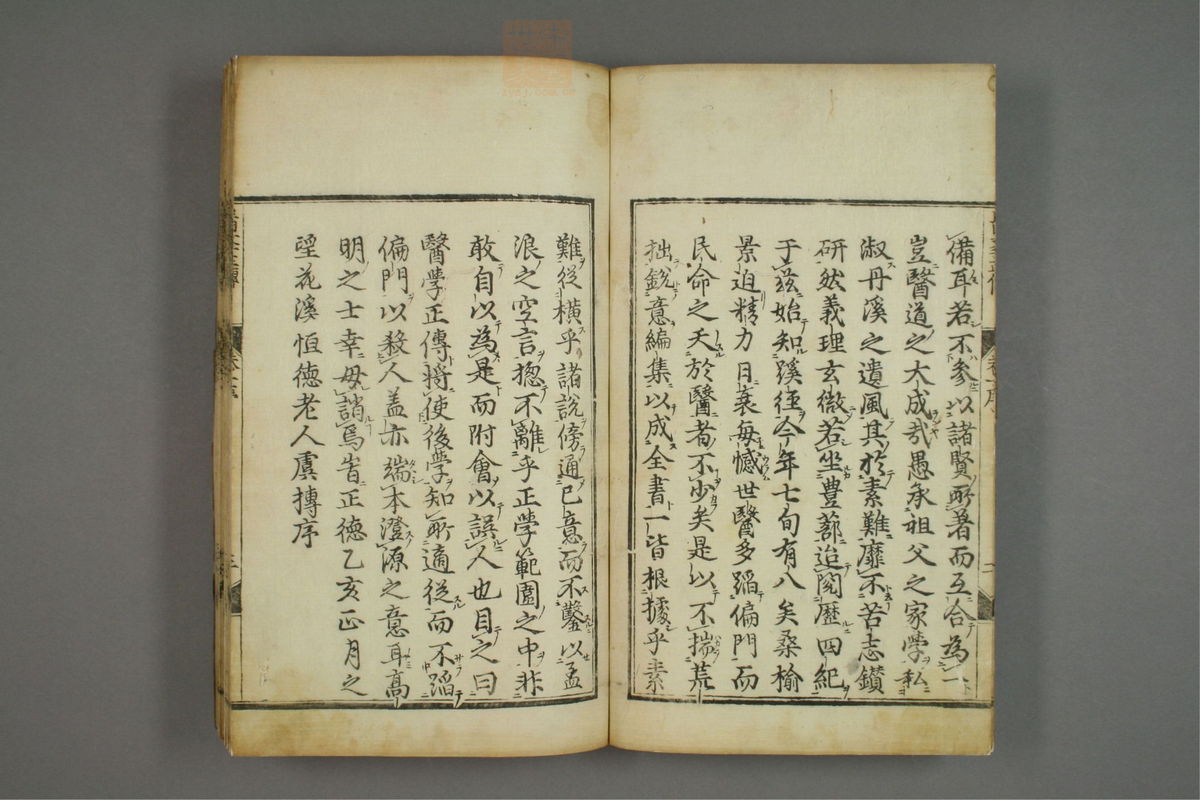 備耳若不參以諸賢所著而互合為一
豈醫道之大成哉愚承祖父之家學私
淑丹溪之遺風其於素難靡不苦志鑽
研然義理玄微若坐豊蔀迨閱歷四紀
于茲始知蹊徑今年七旬有八矣桑榆
景迫精力日衰每憾世醫多蹈偏門而
民命之夭於醫者不少矣是以不揣荒
拙銳意編集以成全書一皆根據乎素
難從橫乎諸說傍通已意而不鑿以孟
浪之空言揔不離乎正學範圍之中非
敢自以為是而附會以誤人也目之曰
醫學正傳將使後學知所適從而不蹈
偏門以殺人盖亦端本澄源之意耳高
明之士幸毋誚焉旹正德乙亥正月之
望花溪恒德老人虞摶序